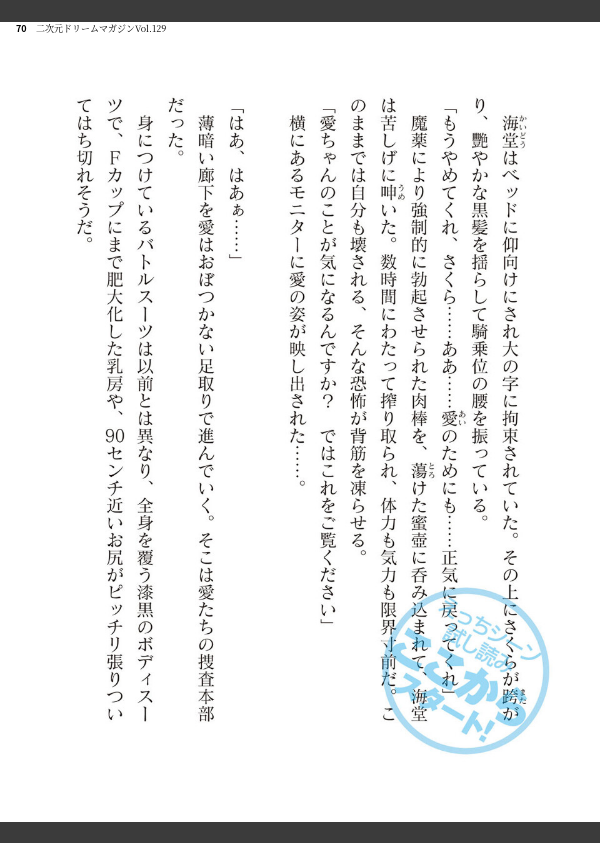 70 二次元ドリームマガジンVol.129
海堂はベッドに仰向けにされ大の字に拘束されていた。その上にさくらが跨が
り、艶やかな黒髪を揺らして騎乗位の腰を振っている。
「もうやめてくれ、さくら……ああ……愛のためにも……正気に戻ってくれ」
魔薬により強制的に勃起させられた肉棒を、蕩けた蜜壺に呑み込まれて、海堂
は苦しげに呻いた。数時間にわたって搾り取られ、体力も気力も限界寸前だ。こ
のままでは自分も壊される、そんな恐怖が背筋を凍らせる。
「愛ちゃんのことが気になるんですか？　ではこれをご覧ください」
横にあるモニターに愛の姿が映し出された……。
「はあ、はあぁ……」
薄暗い廊下を愛はおぼつかない足取りで進んでいく。そこは愛たちの捜査本部
だった。
身につけているバトルスーツは以前とは異なり、全身を覆う漆黒のボディスー
ツで、Ｆカップにまで肥大化した乳房や、90センチ近いお尻がピッチリ張りつい
てはち切れそうだ。
かいどう
また
あい
とろ
うめ
えっちシーン
試し読み
ここから
スタート！